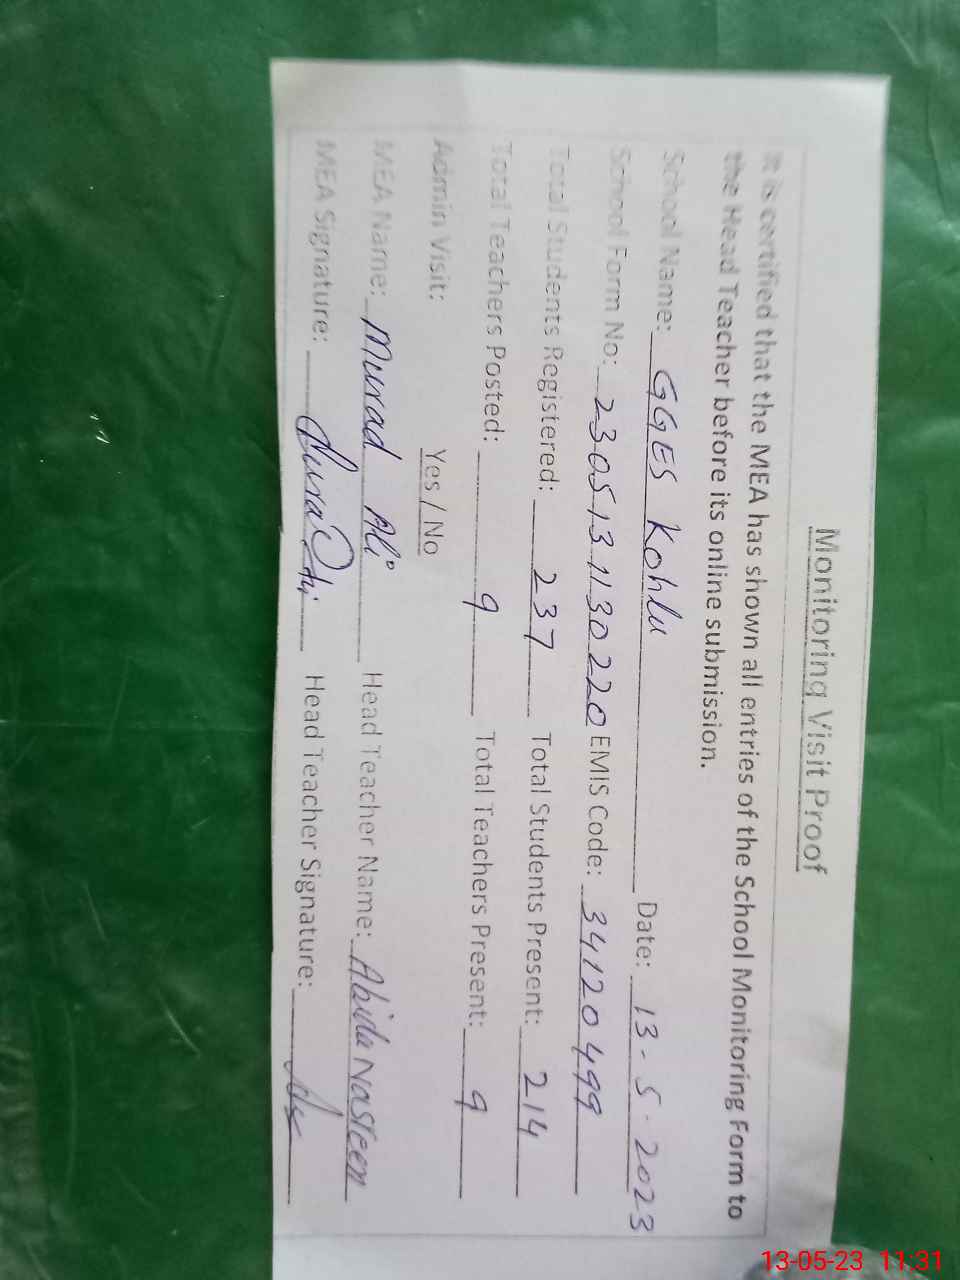 Monitoring Visit Proof
It is certified that the MEA has shown all entries of the School Monitoring Form to
the Head Teacher before its online submission.
School Name: GGES Kohlu Date: 13-5-2023
School Form No: 230513113022 0 EMIS Code: 34120499
Total Students Registered: 237 Total Students Present: 214
Total Teachers Posted: 9 Total Teachers Present: 9
Admin Visit: Yes / No
MEA Name: Murad Ali Head Teacher Name: Abida Nasreen
MEA Signature: Head Teacher Signature:
13-05-23 11:31